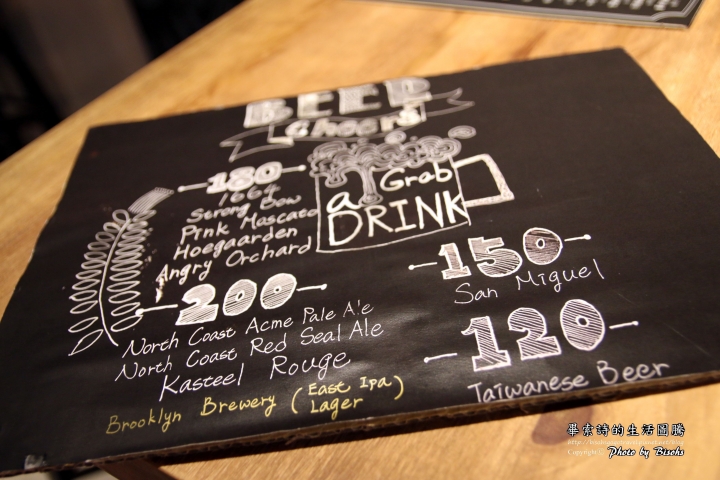 BEER
Cheers
Grab
a
DRINK
180
1664
Strong Bow
Pink Moscato
Hoegaarden
Angry Orchard
200
North Coast Acme Pale Ale
North Coast Red Seal Ale
Kasteel Rouge
Brooklyn Brewery (East Ipa)
Lager
150
San Miguel
120
Taiwanese Beer
畢索詩的生活圖騰
Photo by Bisohs